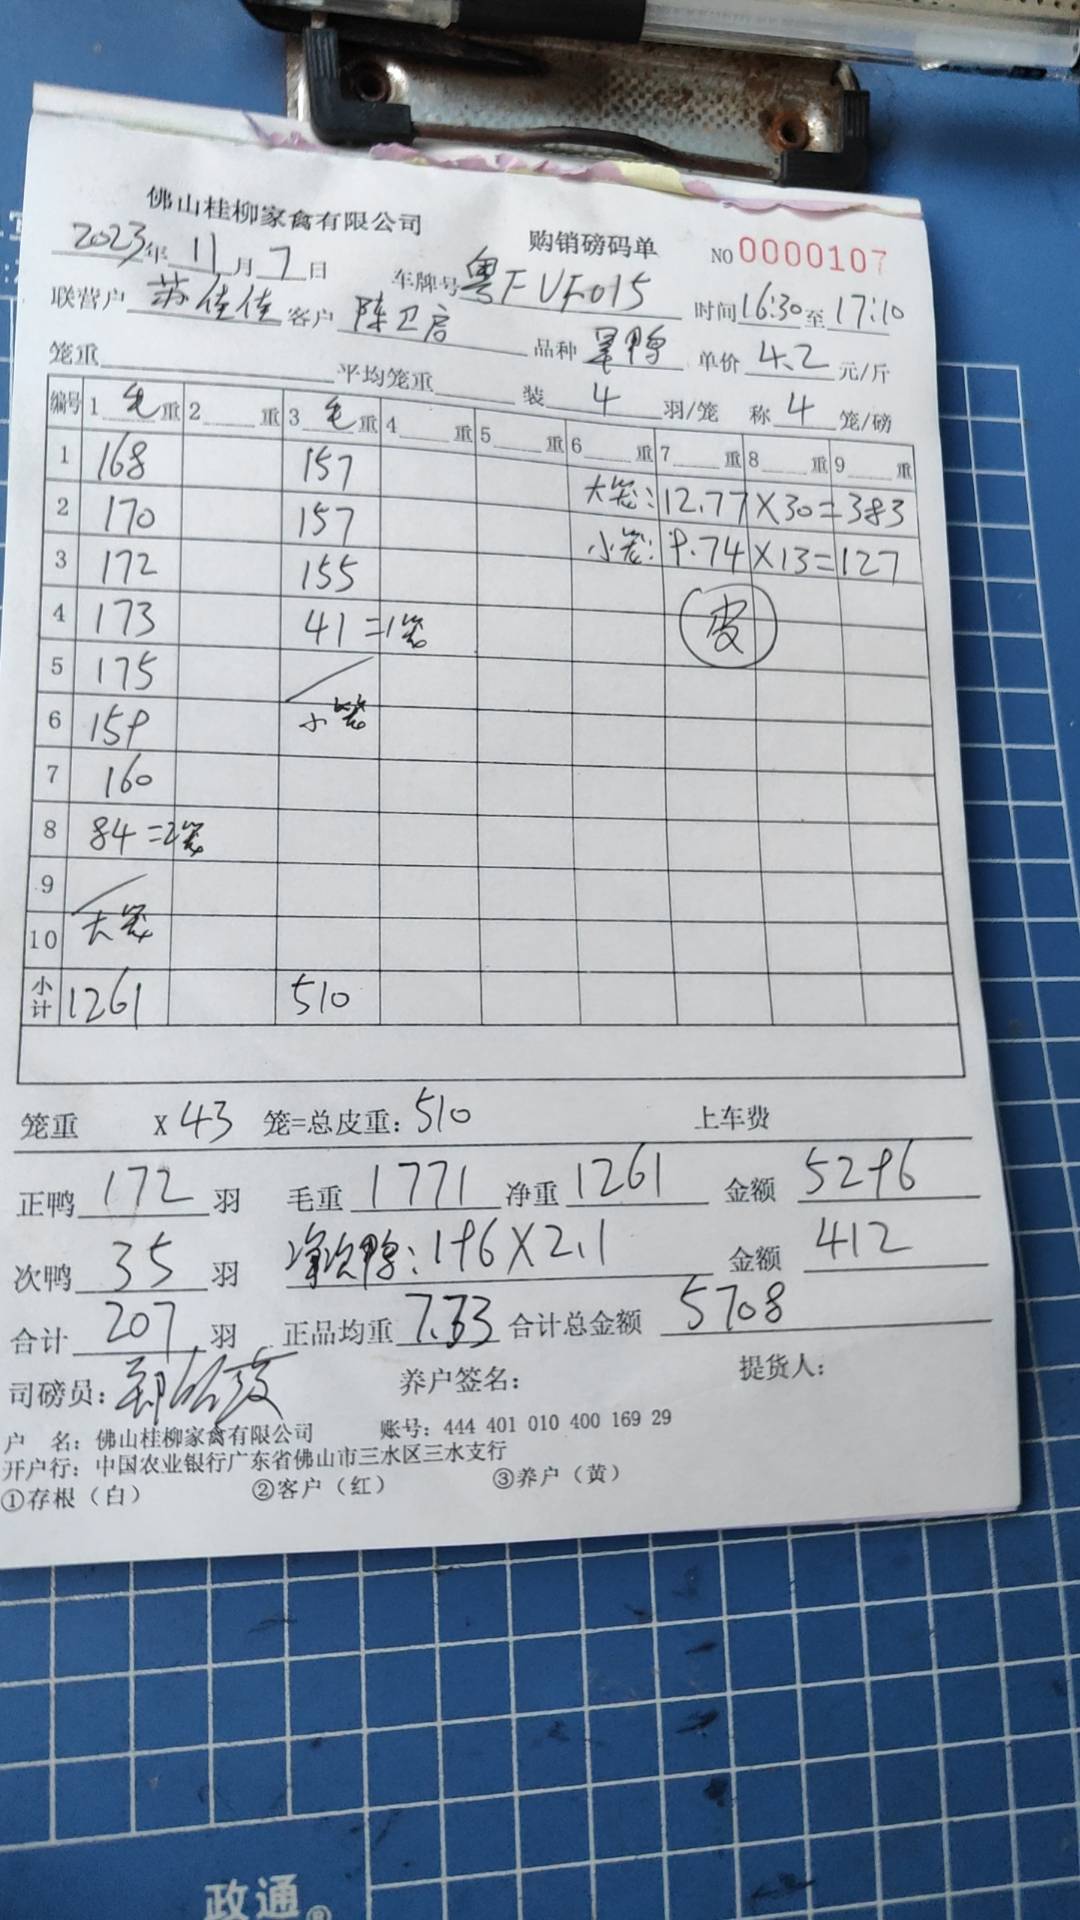 佛山桂柳家禽有限公司 购销磅码单 NO 0000107
2023年11月7日 车牌号粤FVF015 时间16:30至17:10
联营户 苏佳佳 客户 陈卫 品种 单价 4.2 元/斤
笼重 平均笼重 装 4 羽/笼 称 4 笼/磅
编号 1 毛重 2 重 3 毛重 4 重 5 重 6 重 7 重 8 重 9 重
1 168 157 大笼: 12.77 X 30 = 383
2 170 157 小笼: 9.74 X 13 = 127
3 172 155 皮
4 173 41 = 1笼
5 175
6 159 小笼
7 160
8 84 = 2笼
9
10 大笼
小计 1261 510
笼重 X 43 笼=总皮重: 510 上车费
正鸭 172 羽 毛重 1771 净重 1261 金额 5296
次鸭 35 羽 净次鸭: 196 X 2.1 金额 412
合计 207 羽 正品均重 7.33 合计总金额 5708
司磅员: 养户签名: 提货人:
户 名: 佛山桂柳家禽有限公司 账号: 444 401 010 400 169 29
开户行: 中国农业银行广东省佛山市三水区三水支行
①存根（白） ②客户（红） ③养户（黄）
政通®